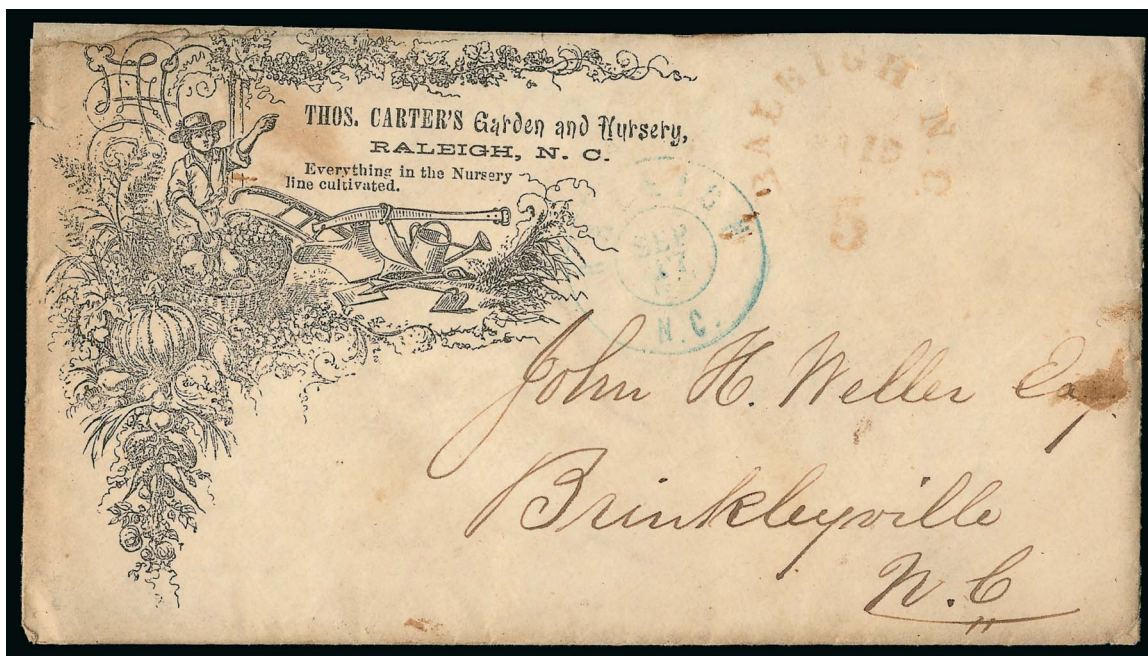 THOS. CARTER'S Garden and Nursery,
RALEIGH, N. C.
Everything in the Nursery
line cultivated.
RALEIGH N.C.
5
RALEIGH
SEP
N.C.
John H. Weller Esq.
Brinkleyville
N.C